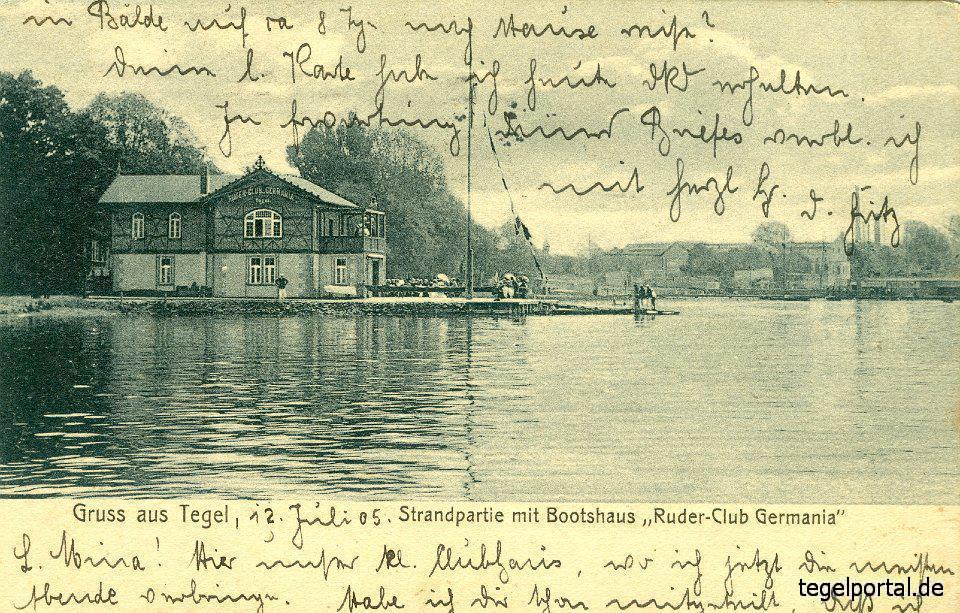 in Bälde auf ca 8 Tg. nach Hause muß?
Deine l. Karte hab ich heute dkd erhalten.
In Erwartung Deines Briefes verbl. ich
mit herzl Gr. d. Fritz
RUDER-CLUB GERMANIA
Gruss aus Tegel, 12. Juli 05. Strandpartie mit Bootshaus „Ruder-Club Germania"
L. Mina! Hier unser kl. Clubhaus, wo ich jetzt die meisten
Abende verbringe. Habe ich dir schon mitgeteilt daß
tegelportal.de